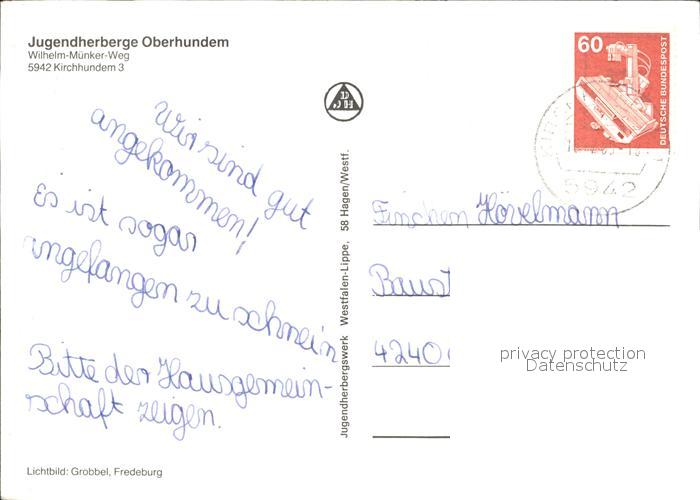 Jugendherberge Oberhundem
Wilhelm-Münker-Weg
5942 Kirchhundem 3
DJH
60
DEUTSCHE BUNDESPOST
5942
Wir sind gut
angekommen!
Es ist sogar
angefangen zu schnein
Bitte der Hausgemein-
schaft zeigen.
Jugendherbergswerk Westfalen-Lippe, 58 Hagen/Westf.
Finchen Hövelmann
Baust
4240
privacy protection
Datenschutz
Lichtbild: Grobbel, Fredeburg